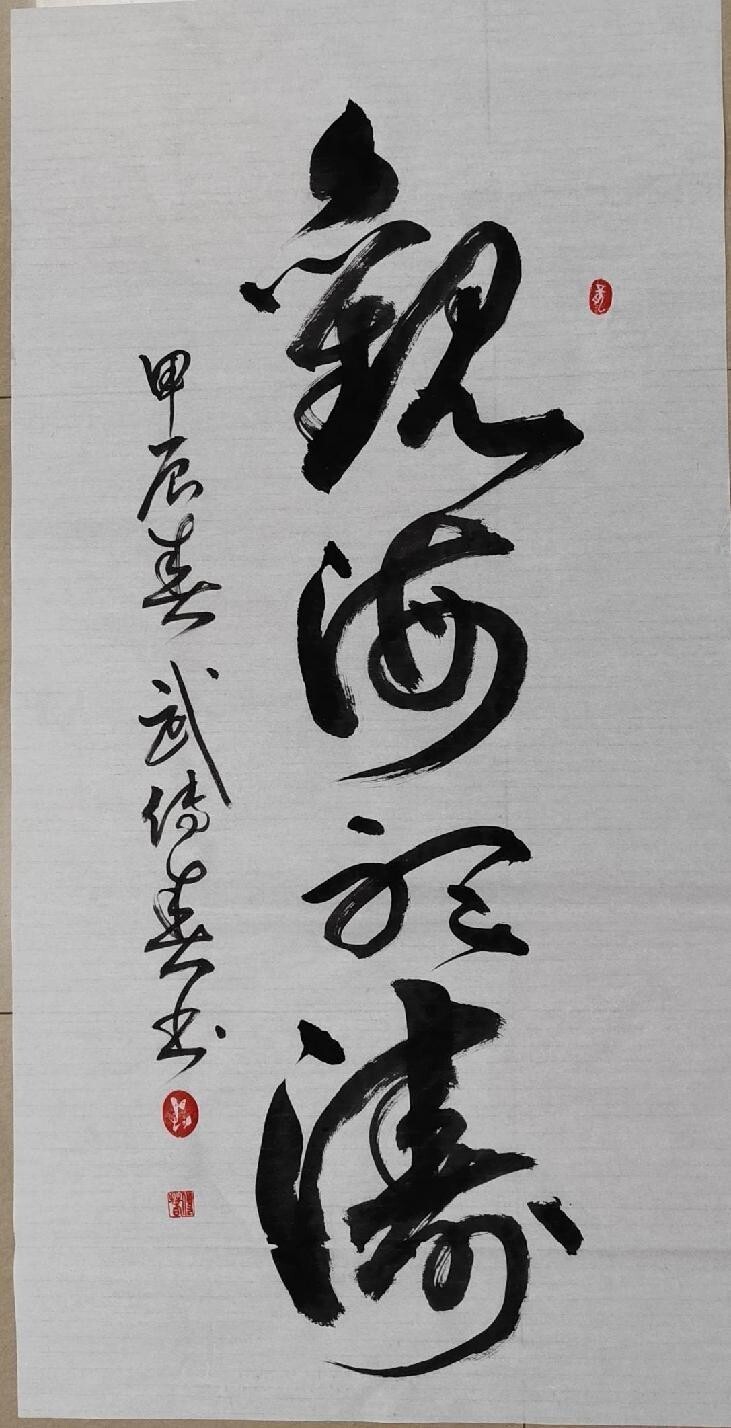 觀海聽濤
甲辰春 武传春书